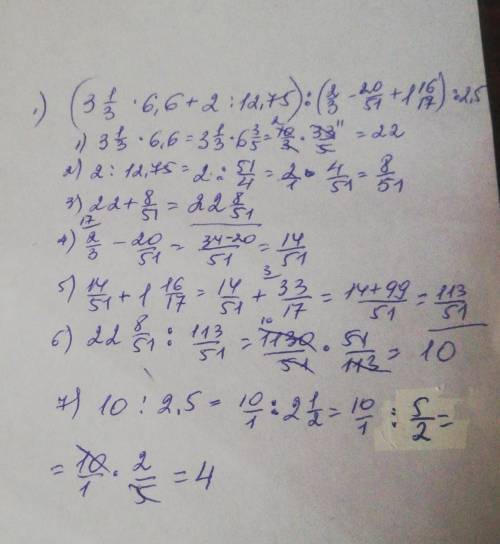 1) (3 1/3 · 6,6 + 2 : 12,75) : (2/3 - 20/51 + 1 16/17) : 2,5
1) 3 1/3 · 6,6 = 3 1/3 · 6 3/5 = 10/3 · 33/5 = 22
2) 2 : 12,75 = 2 : 51/4 = 2/1 · 4/51 = 8/51
3) 22 + 8/51 = 22 8/51
4) 2/3 - 20/51 = 34-20/51 = 14/51
5) 14/51 + 1 16/17 = 14/51 + 33/17 = 14+99/51 = 113/51
6) 22 8/51 : 113/51 = 1130/51 · 51/113 = 10
7) 10 : 2,5 = 10/1 : 2 1/2 = 10/1 : 5/2 =
= 10/1 · 2/5 = 4